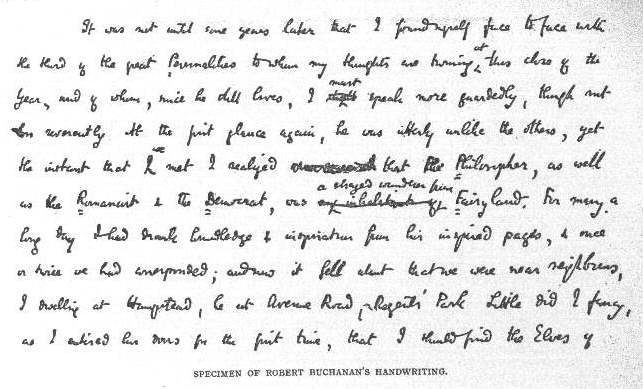 It was not until some years later that I found myself face to face with
the third of the great Personalities to whom my thoughts are turning at this close of the
Year, and of whom, since he still lives, I must speak more guardedly, though not
less reverently. At the first glance again, he was utterly unlike the others, yet
the instant that we met I realized that the Philosopher, as well
as the Romancist & the Democrat, was a strayed wanderer from Fairyland. For many a
long day I had drank knowledge & inspiration from his inspired pages, & once
or twice we had corresponded; and now it fell about that we were near neighbours,
I dwelling at Hampstead, he at Avenue Road, Regents' Park. Little did I fancy,
as I entered his doors for the first time, that I should find the Elves of
SPECIMEN OF ROBERT BUCHANAN'S HANDWRITING.